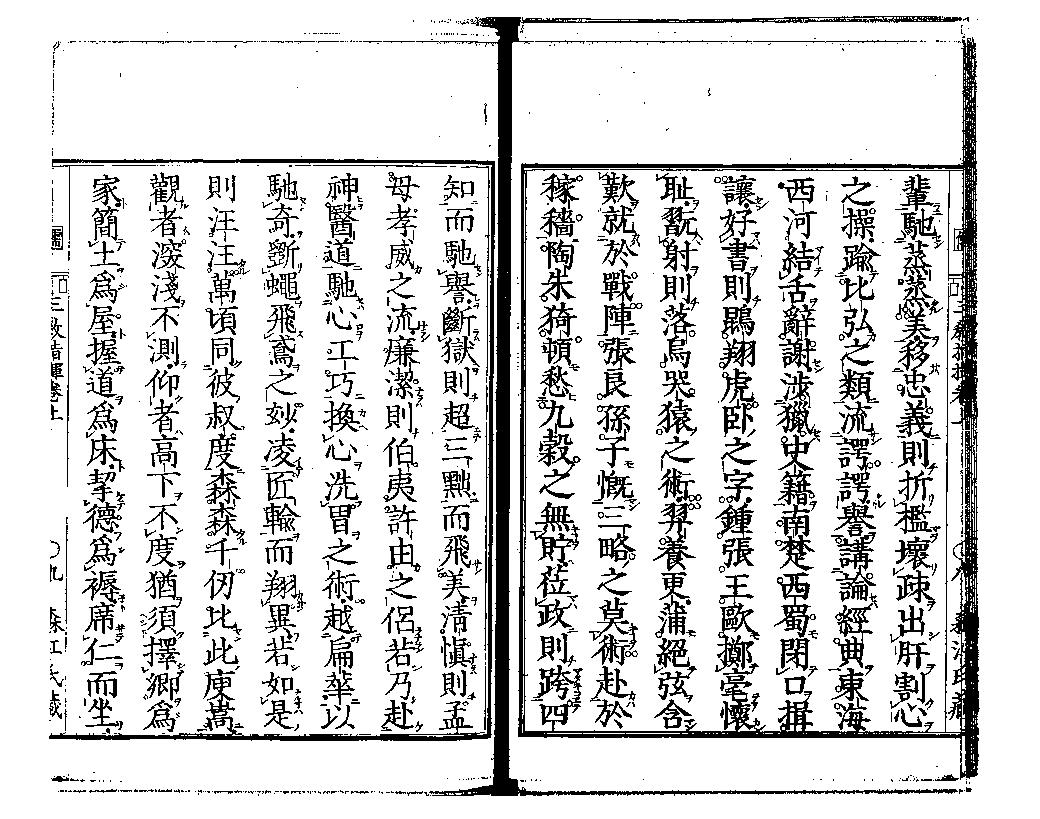 輩馳蒸蒸美移忠義則折檻壞疎出肝割心
之操踰比弘之類流諤諤譽講論經典東海
西河結舌辭謝涉獵史籍南楚西蜀閉口揖
讓好書則鵾翔虎臥之字鍾張王歐擲毫懷
恥翫射則落烏哭猿之術羿養更蒲絕弦含
歎就於戰陣張良孫子慨三略之莫術赴於
稼穡陶朱猗頓愁九穀之無貯莅政則跨四
知而馳譽斷獄則超三黜而飛美淸愼則孟
母孝威之流廉潔則伯夷許由之侶若乃赴
神醫道馳心工巧換心洗胃之術越扁華以
馳奇斲蠅飛鳶之妙凌匠輸而翔異若如是
則汪汪萬頃同彼叔度森森千仞比此庾嵩
觀者深淺不測仰者高下不度猶須擇鄉爲
家簡土爲屋握道爲床挈德爲褥席仁而坐
三敎指揮卷上
〇九
森江氏藏